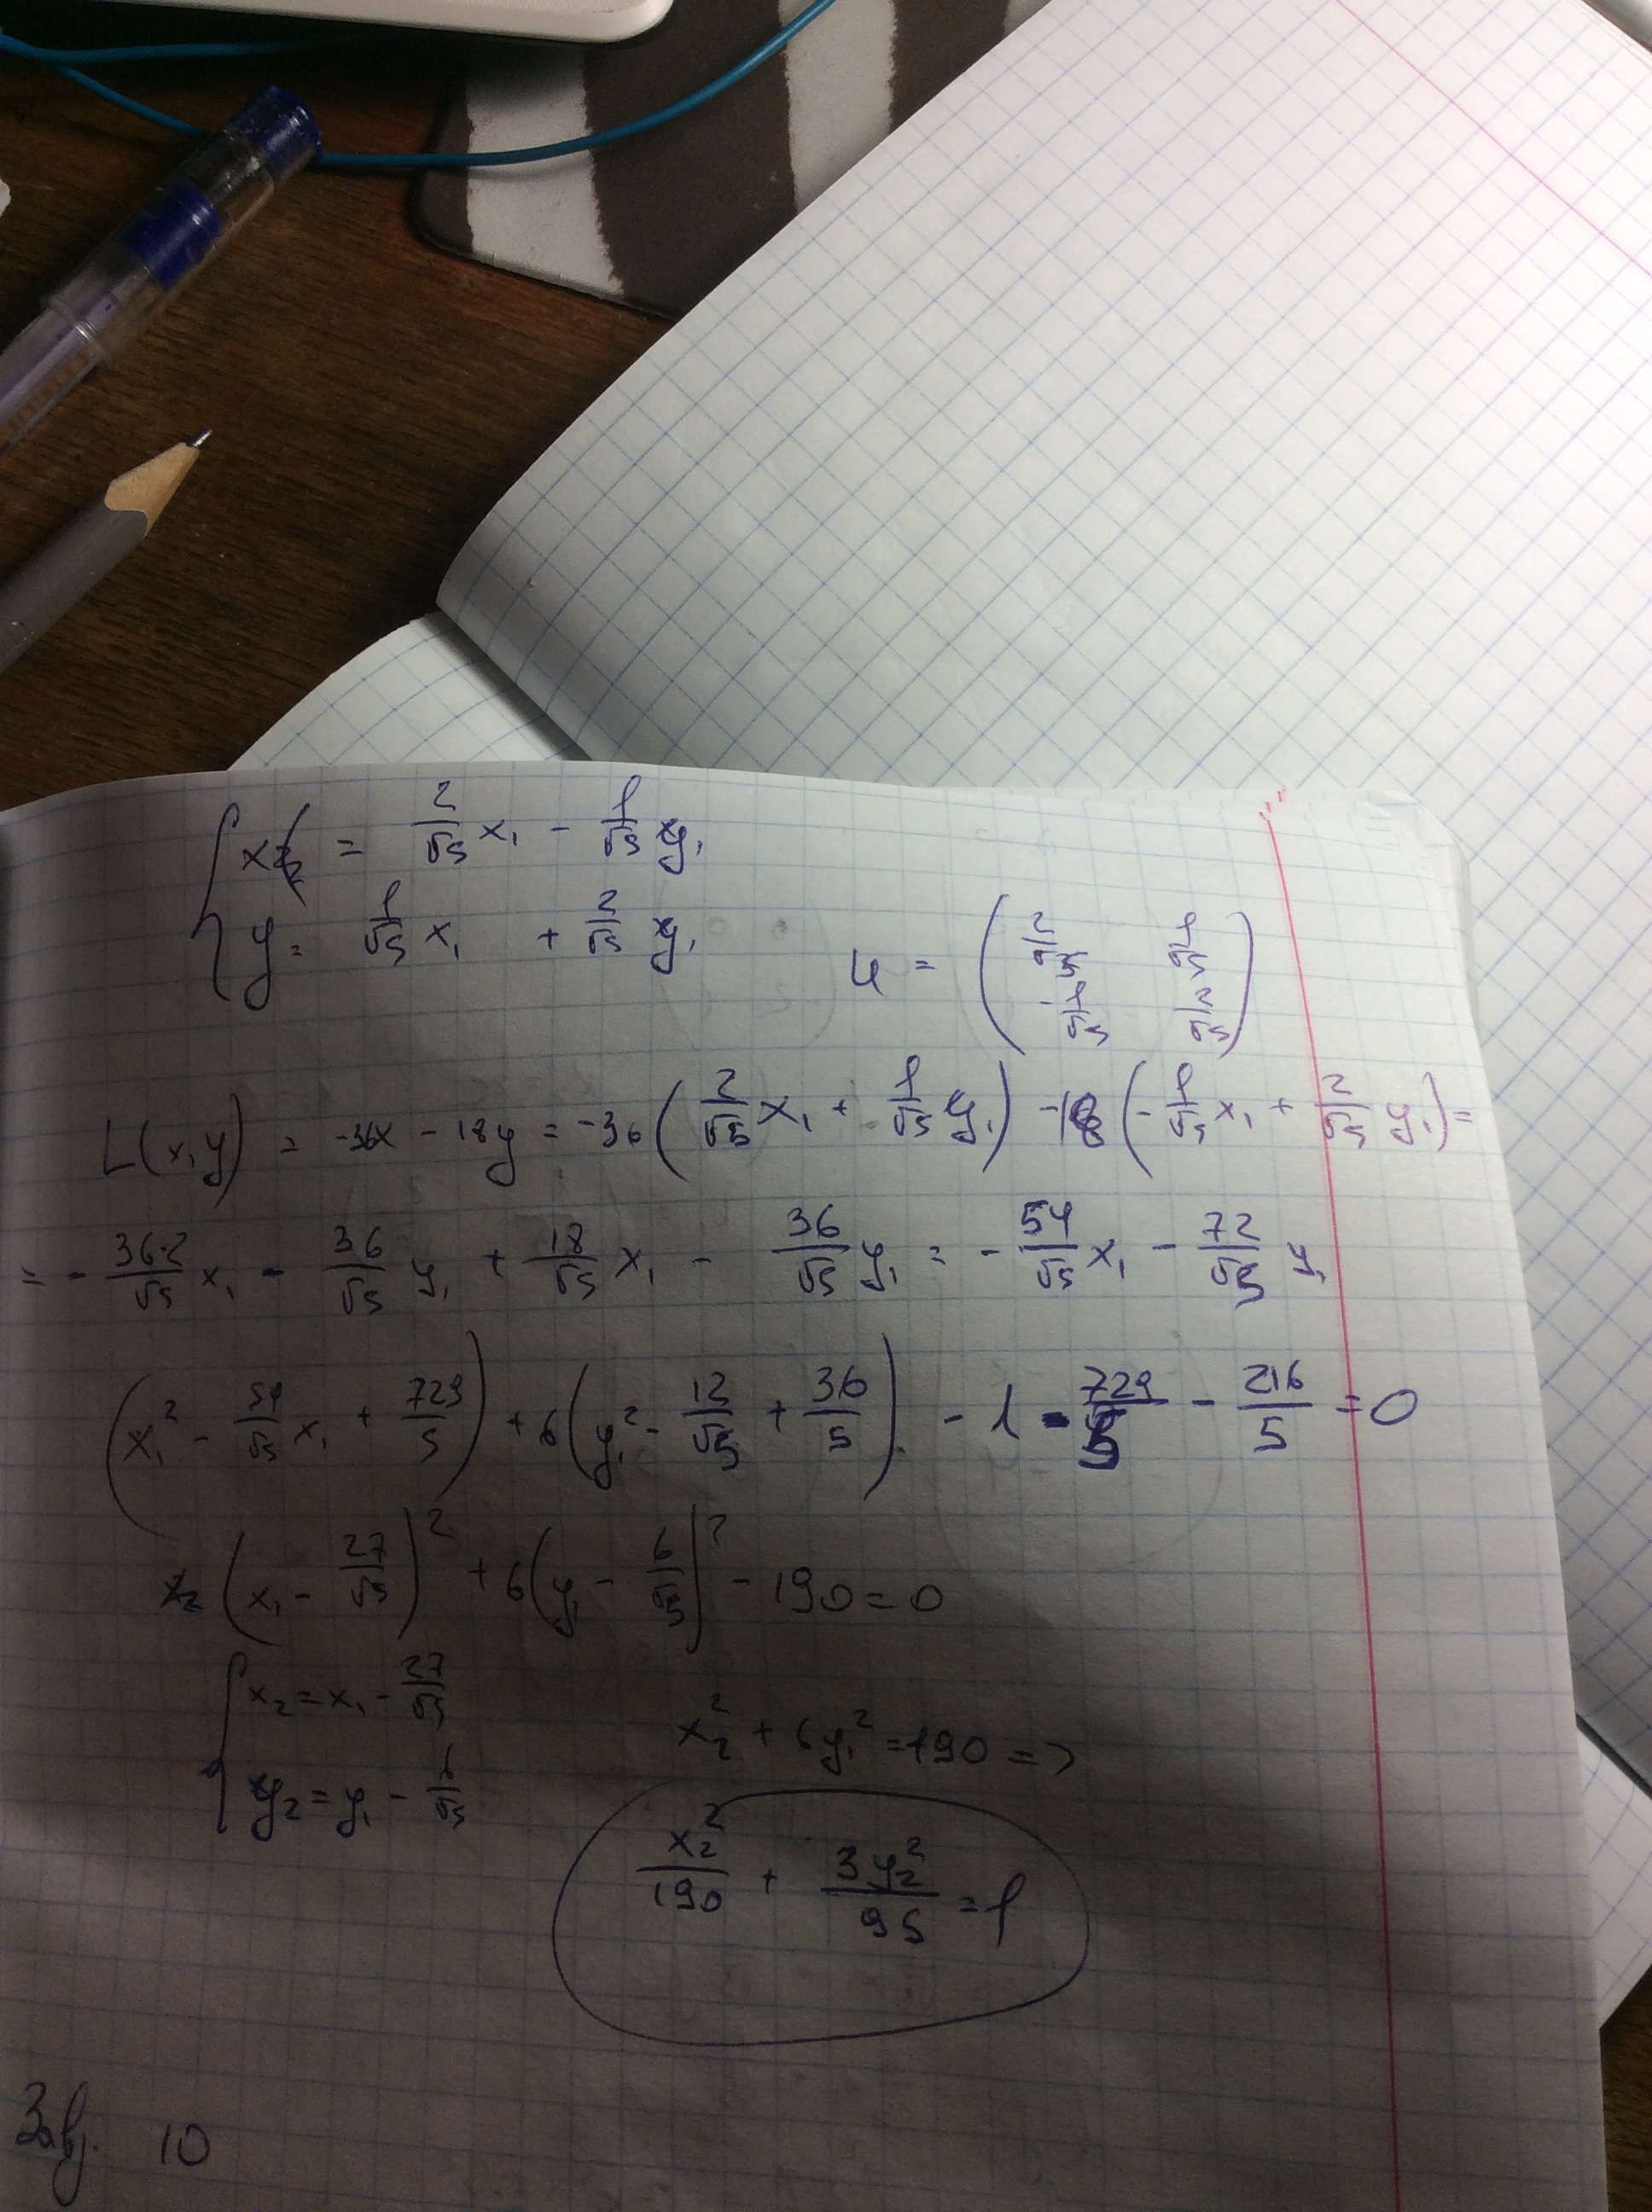 { x = 2/√5 x₁ - 1/√5 y₁
y = 1/√5 x₁ + 2/√5 y₁
U = ( 2/√5 1/√5 ; -1/√5 2/√5 )
L(x,y) = -36x - 18y = -36( 2/√5 x₁ + 1/√5 y₁ ) - 18( -1/√5 x₁ + 2/√5 y₁ ) =
= - 36·2/√5 x₁ - 36/√5 y₁ + 18/√5 x₁ - 36/√5 y₁ = - 54/√5 x₁ - 72/√5 y₁
( x₁² - 54/√5 x₁ + 729/5 ) + 6( y₁² - 12/√5 + 36/5 ) - 1 - 729/5 - 216/5 = 0
( x₁ - 27/√5 )² + 6( y₁ - 6/√5 )² - 190 = 0
{ x₂ = x₁ - 27/√5
y₂ = y₁ - 6/√5
x₂² + 6y₁² = 190 =>
x₂²/190 + 3y₂²/95 = 1
Завд. 10